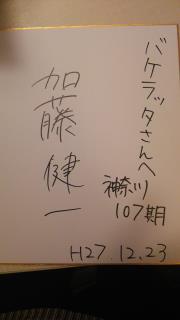 バケラッタさんへ
加藤健一
神奈川
107期
H27.12.23